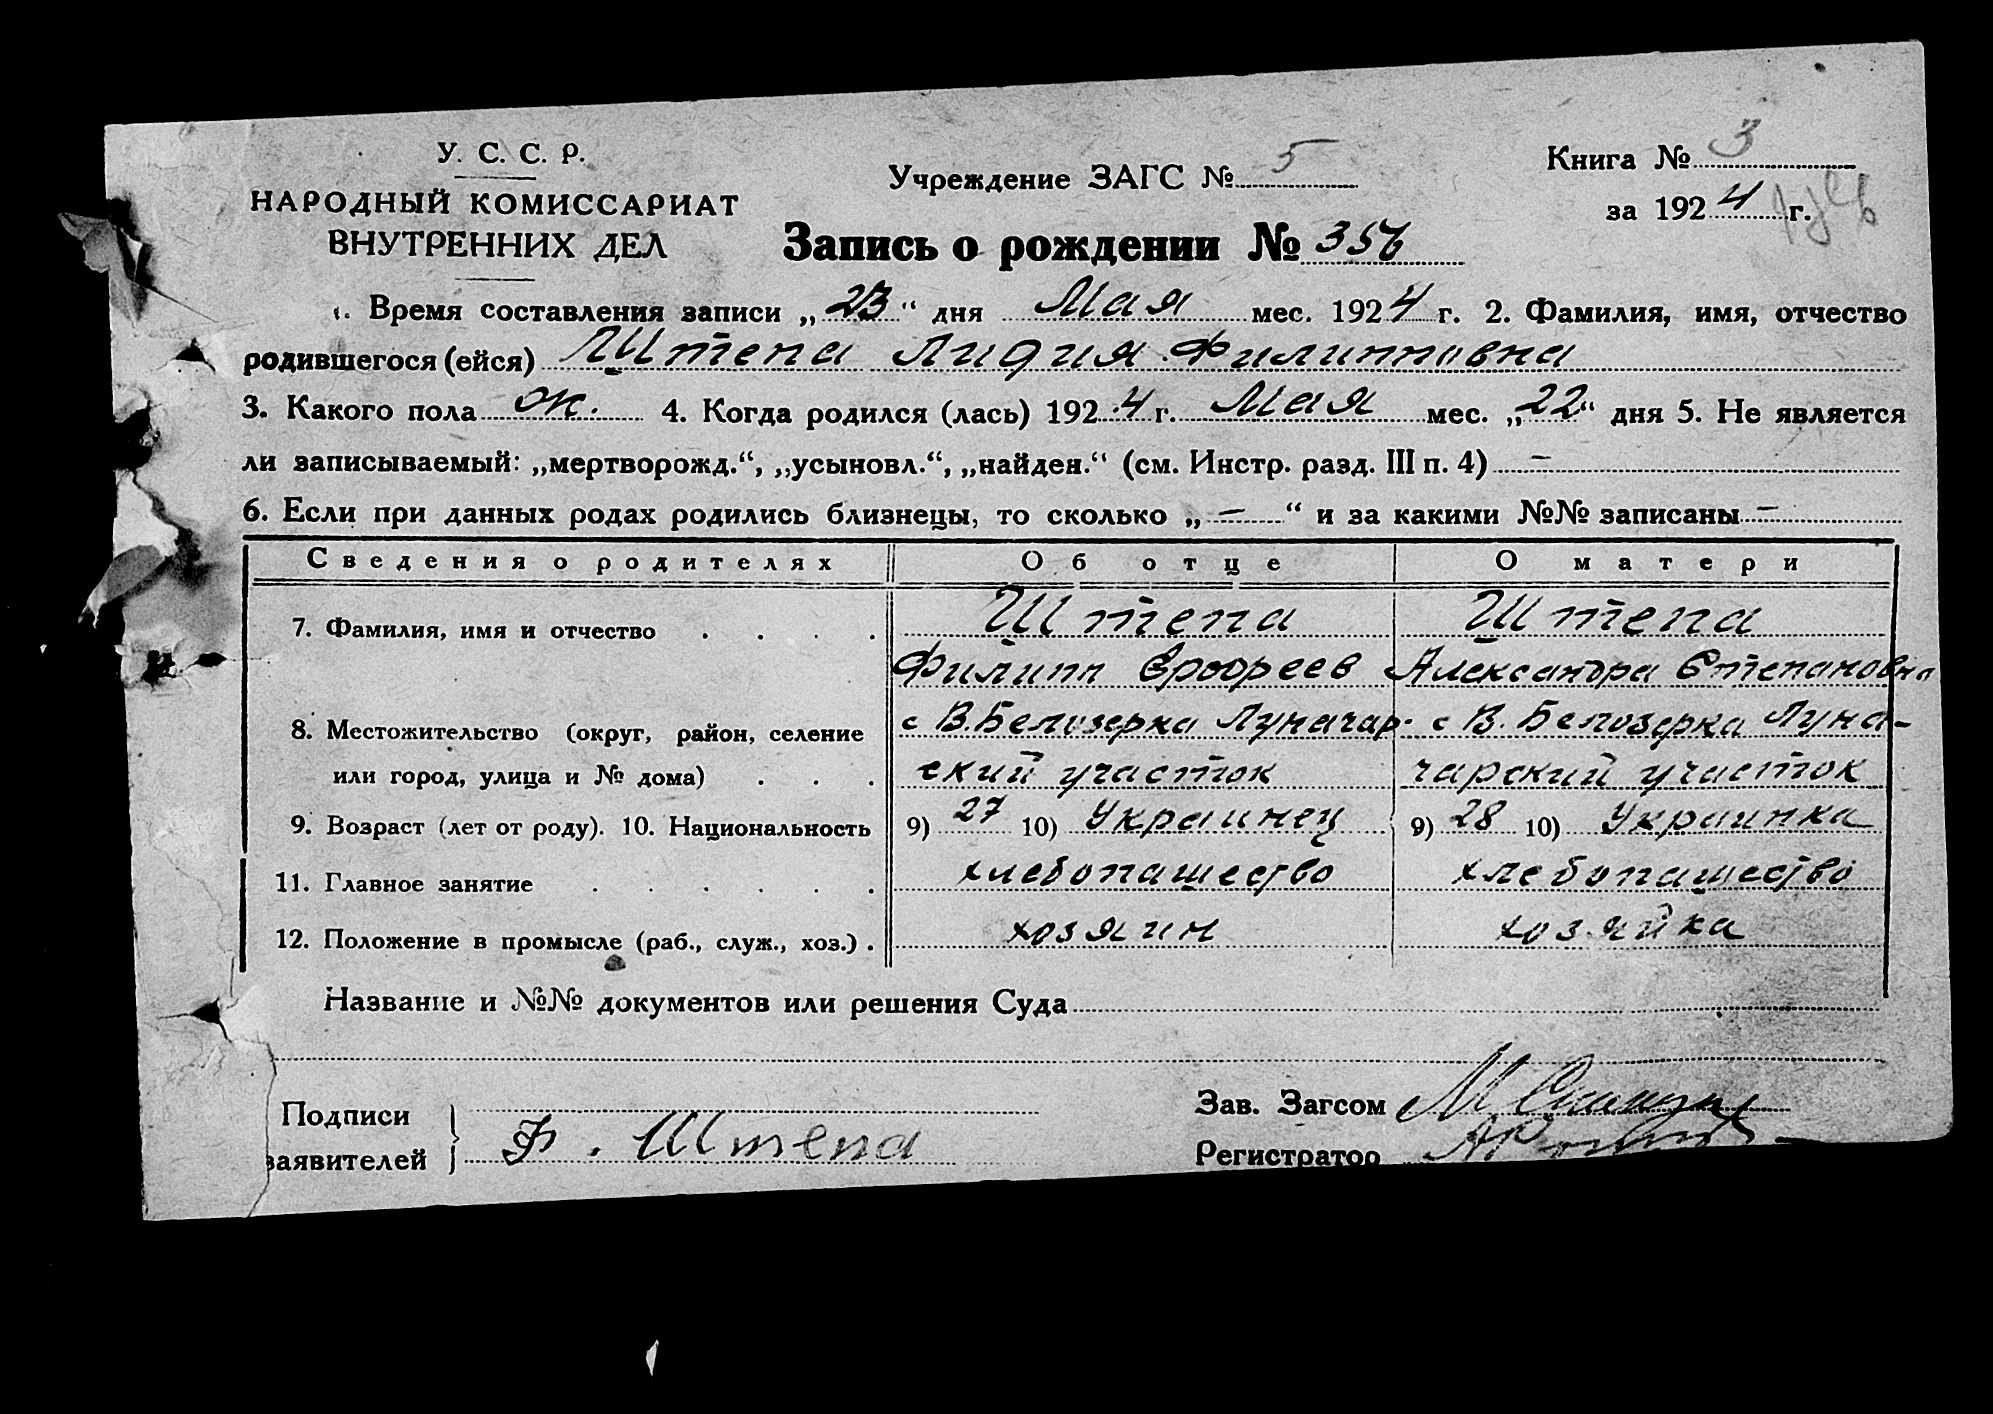 У. С. С. Р.
НАРОДНЫЙ КОМИССАРИАТ
ВНУТРЕННИХ ДЕЛ
Учреждение ЗАГС № 5
Книга № 3
за 1924 г.
Запись о рождении № 356
1. Время составления записи „23“ дня Мая мес. 1924 г. 2. Фамилия, имя, отчество
родившегося (ейся) Штепа Лидия Филипповна
3. Какого пола ж. 4. Когда родился (лась) 1924 г. Мая мес. „22“ дня 5. Не является
ли записываемый: „мертворожд.“, „усыновл.“, „найден.“ (см. Инстр. разд. III п. 4) —
6. Если при данных родах родились близнецы, то сколько „—“ и за какими №№ записаны —
Сведения о родителях Об отце О матери
7. Фамилия, имя и отчество . . . . Штепа Штепа
Филипп Ерофеев Александра Степановна
8. Местожительство (округ, район, селение с В.Белозерка Луначар- с В. Белозерка Луна-
или город, улица и № дома) . . . ский участок чарский участок
9. Возраст (лет от роду). 10. Национальность 9) 27 10) Украинец 9) 28 10) Украинка
11. Главное занятие . . . . . . хлебопашество хлебопашество
12. Положение в промысле (раб., служ., хоз.) . хозяин хозяйка
Название и №№ документов или решения Суда
Подписи
заявителей Ф. Штепа
Зав. Загсом
Регистратор